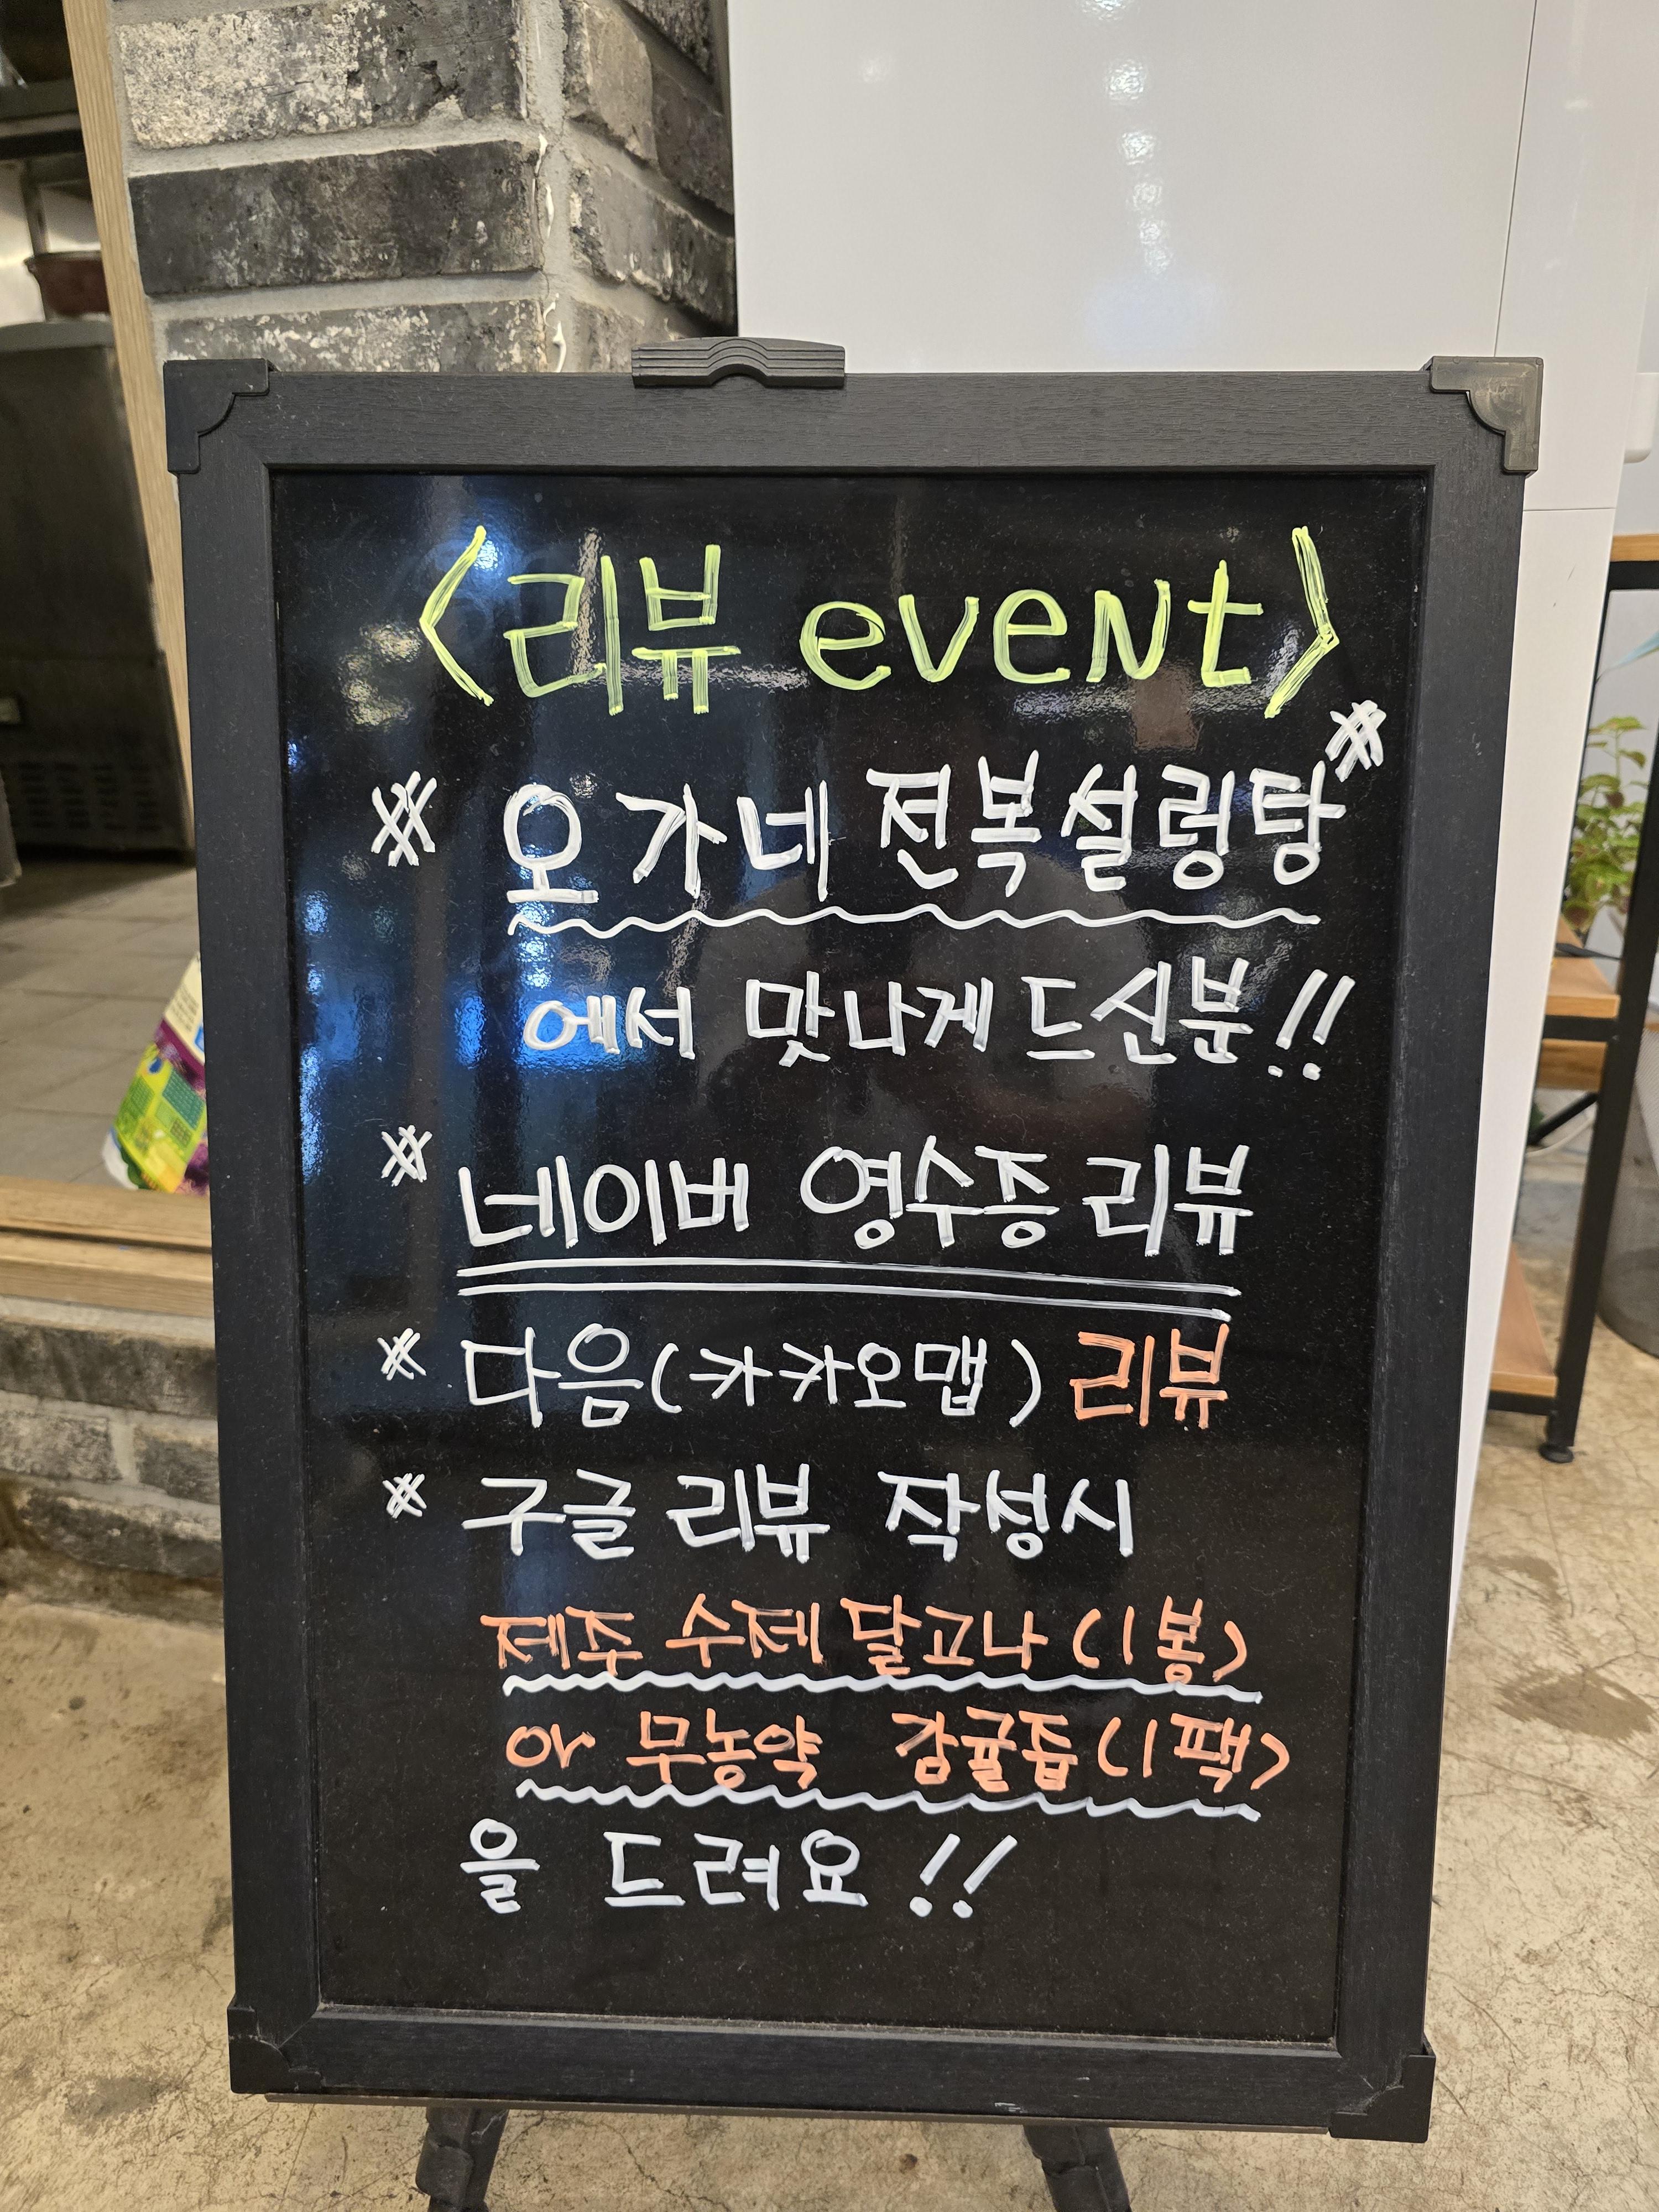 <리뷰 event>
※ 오가네 전복설렁탕 ※
에서 맛나게 드신분!!
※ 네이버 영수증 리뷰
※ 다음(카카오맵) 리뷰
※ 구글 리뷰 작성시
제주 수제 달고나 (1봉)
or 무농약 감귤즙 (1팩)
을 드려요!!